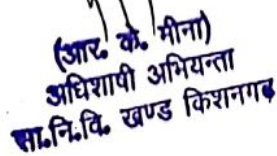 (आर. के. मीना)
अधिशाषी अभियन्ता
सा.नि.वि. खण्ड किशनगढ़